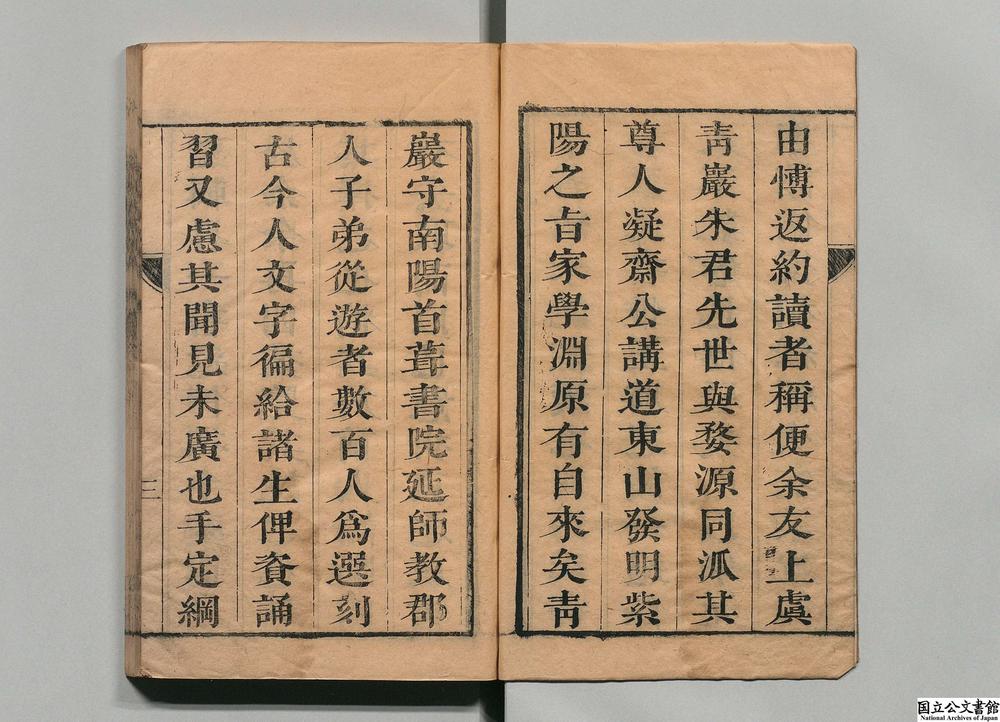 由愽返約讀者稱便余友上虞
靑巖朱君先世與婺源同泒其
尊人凝齋公講道東山發明紫
陽之㫖家學淵原有自來矣靑
巖守南陽首葺書院延師教郡
人子弟從遊者數百人爲選刻
古今人文字徧給諸生俾資誦
習又慮其聞見未廣也手定綱
三
国立公文書館
National Archives of Japan